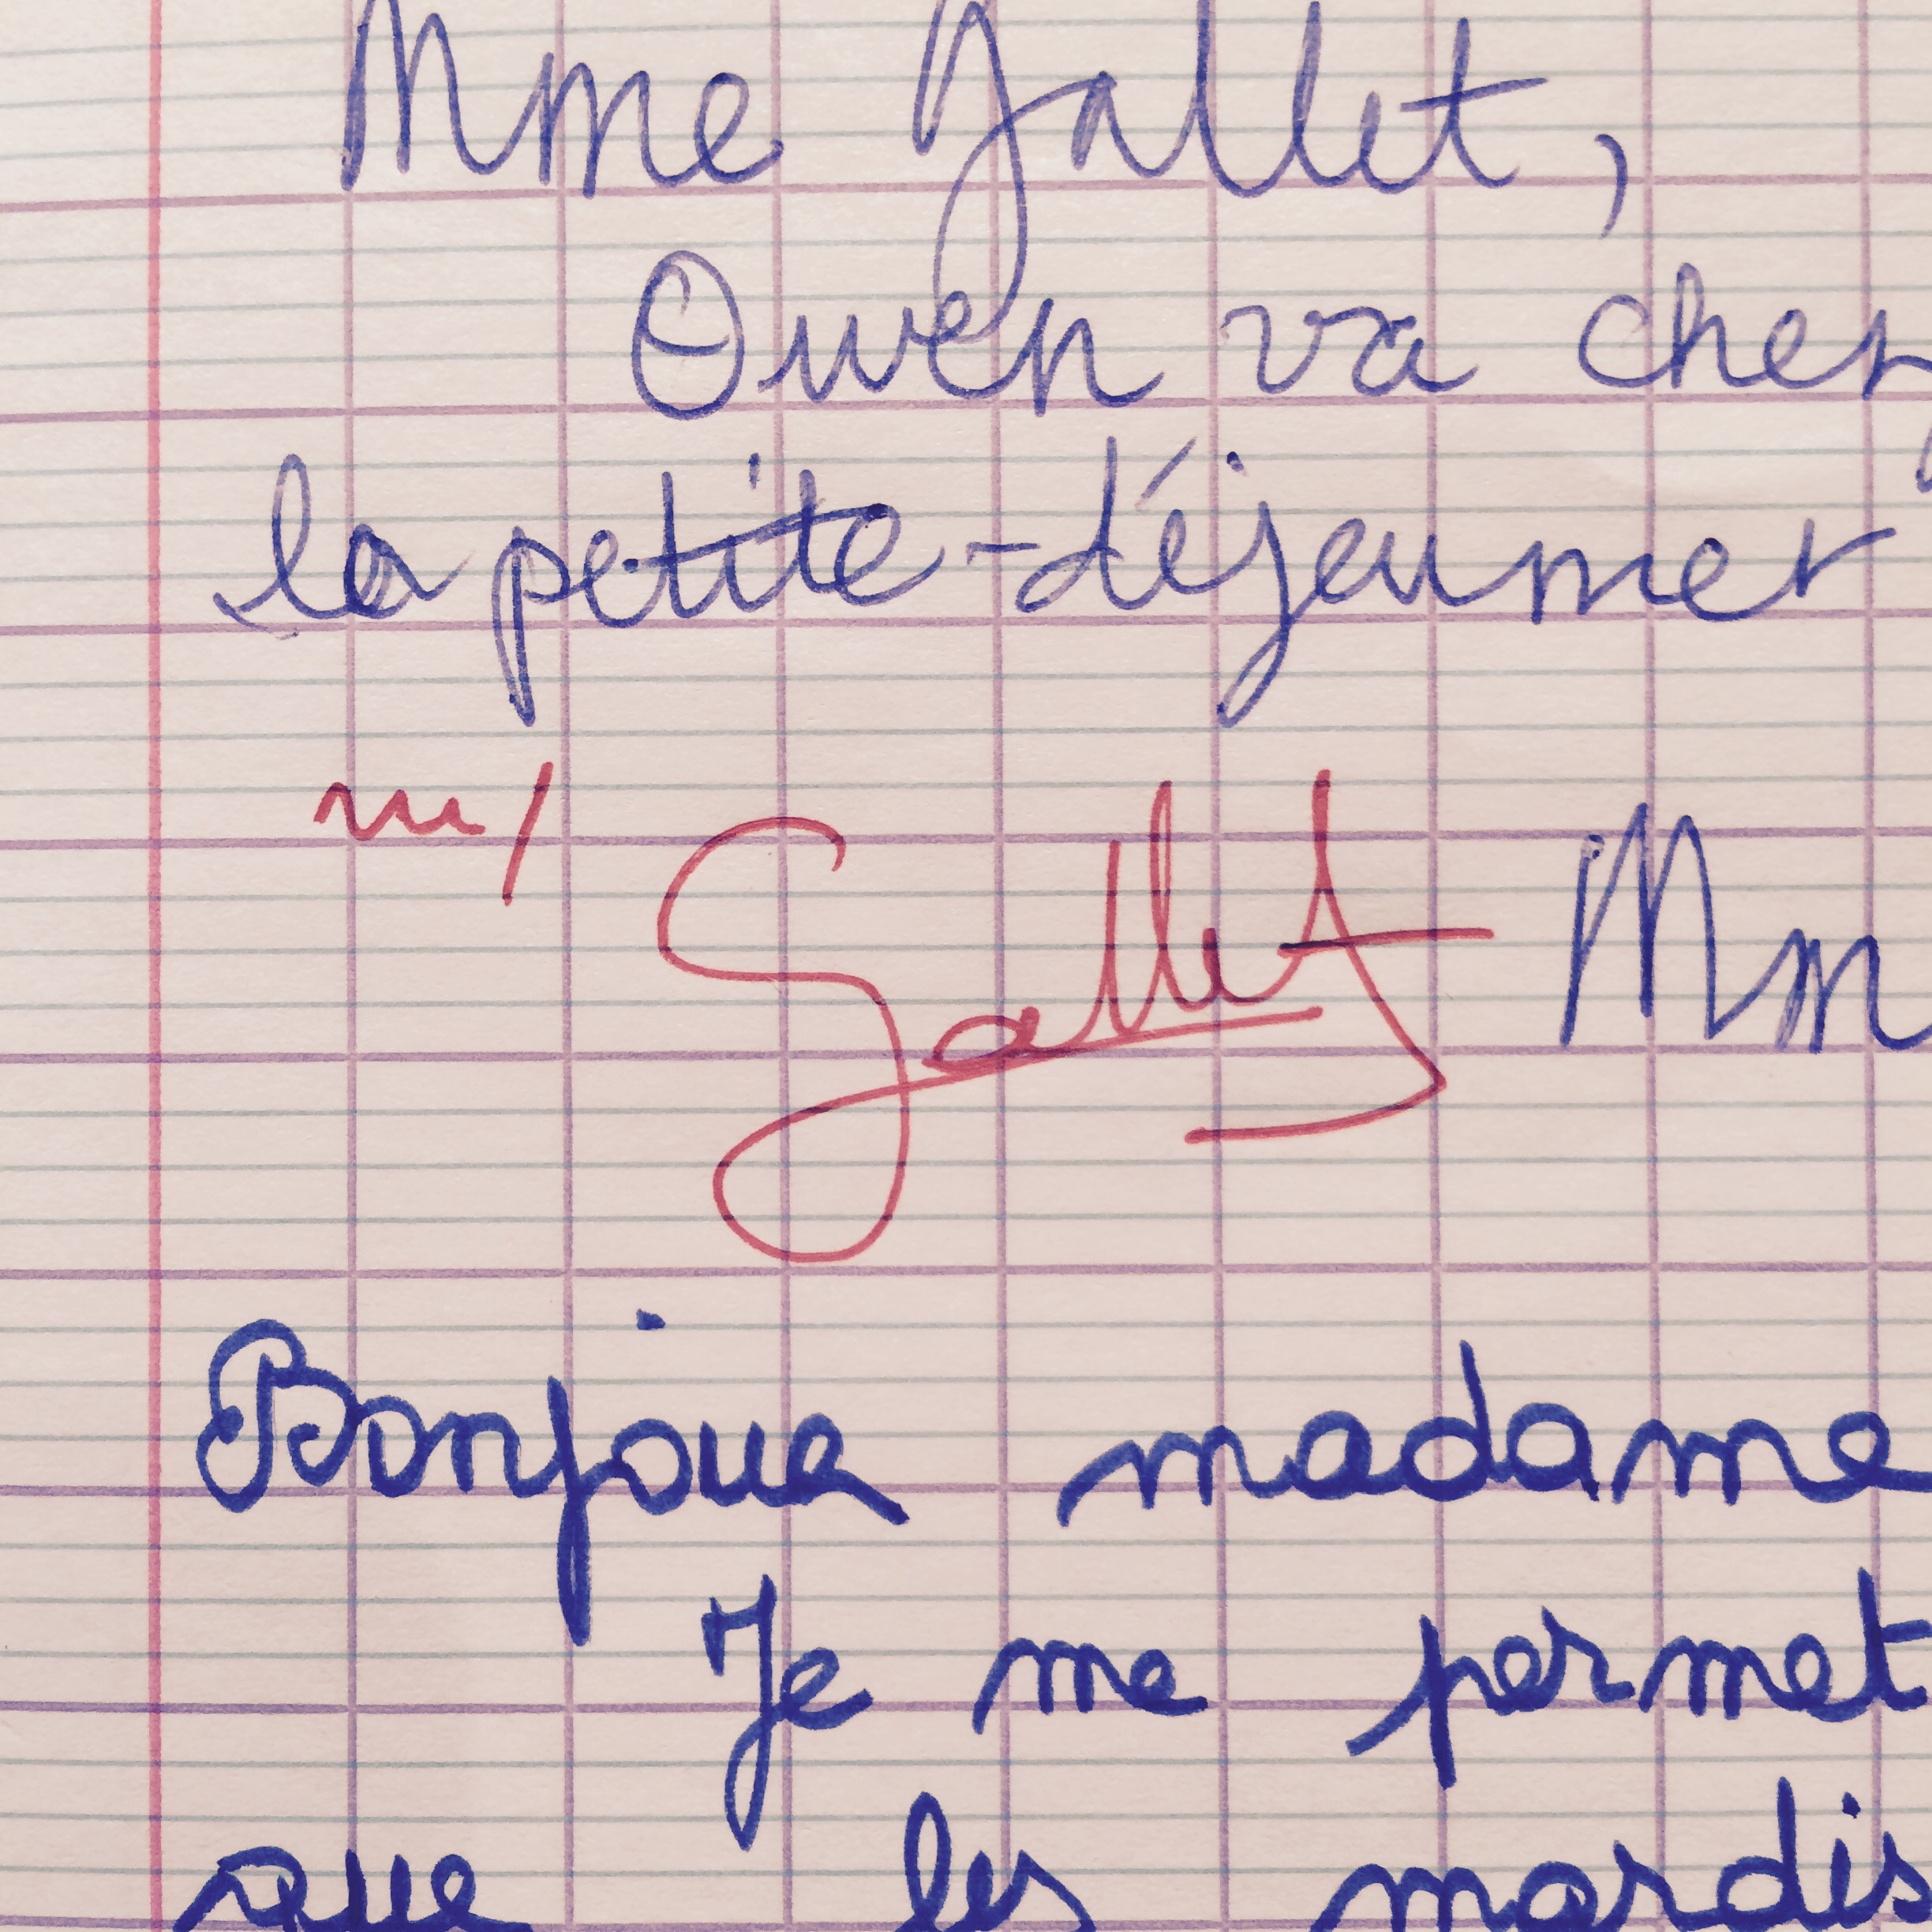 Mme Gallet,
Owen va cher
la petite-déjeuner
vu / Gallet Mm
Bonjour madame
Je me permet
que les mardis